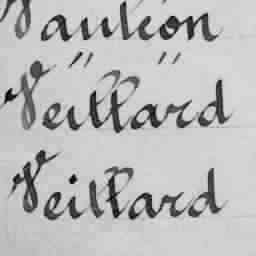 Vauléon
" "
Veillard
Veillard